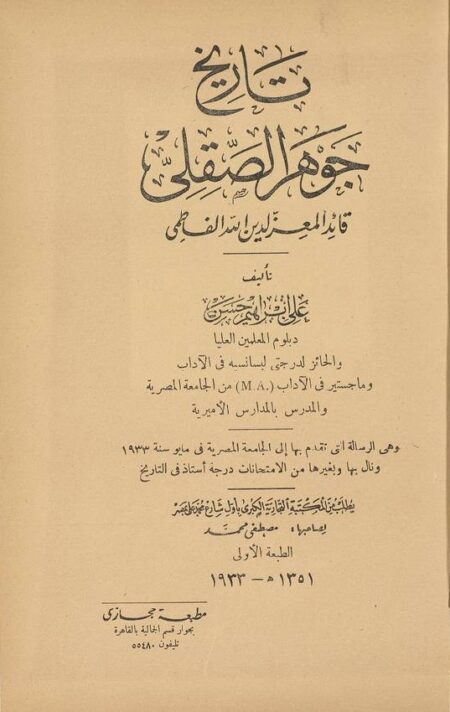 تاريخ
جوهر الصقلي
قائد المعز لدين الله الفاطمي
تأليف
على ابراهيم حسن
دبلوم المعلمين العليا
والحائز لدرجتى ليسانسيه فى الآداب
وماجستير فى الآداب (M.A.) من الجامعة المصرية
والمدرس بالمدارس الأميرية
وهى الرسالة التى تقدم بها إلى الجامعة المصرية فى مايو سنة ١٩٣٣
ونال بها وبغيرها من الامتحانات درجة أستاذ فى التاريخ
يطلب من المكتبة التجارية الكبرى بأول شارع محمد على بمصر
لصاحبها مصطفى محمد
الطبعة الأولى
١٣٥١ ه – ١٩٣٣
مطبعة حجازى
بجوار قسم الجمالية بالقاهرة
تليفون ٥٥٤٨٠